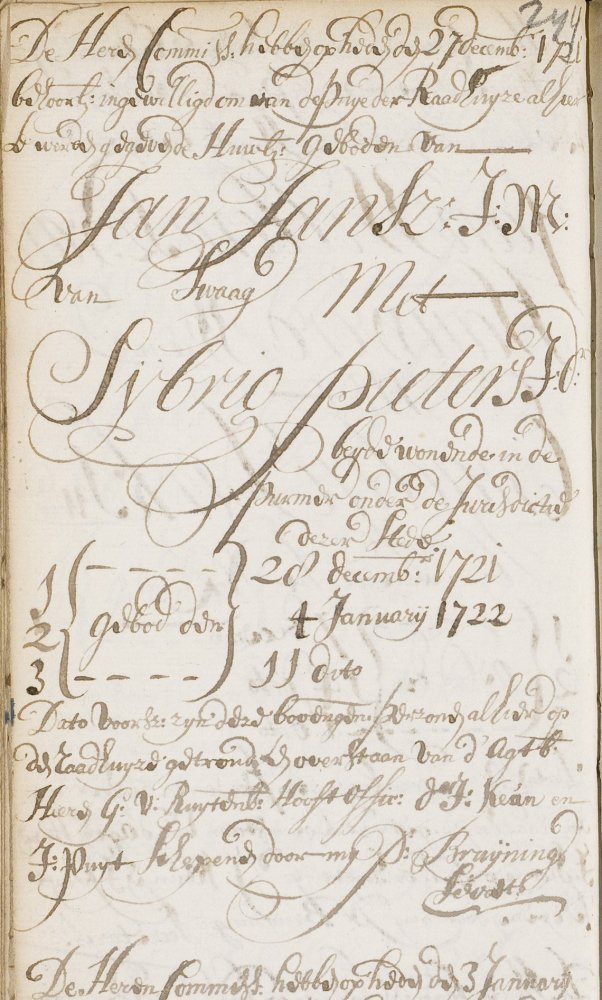 244
De Heren Commiss: hebben op heden den 27 decemb: 1721
behoorl: ingewilligd om van de Puye der Raadhuyze alhier
te werden gegeven de Huwl: Geboden van
Jan Jansz: J:M:
van Swaag Met
Sybrig pieters J:d:
beyde wonende in de
purmer onder de Jurisdictie
dezer stede
1 28 decemb:r 1721
2 geboden den 4 January 1722
3 11 dito
Dato voorsz: zyn deze boovengen: perzonen alhier op
den raadhuyze getrouwd, en overstaan van d' Agtb:
Heren G: V: Ruytenb: Hooft Offic: J: Keun en
J: Puyt Schepenen door my D: Bruyning
Secrets
De Heren Commiss: hebben op heden den 3 January